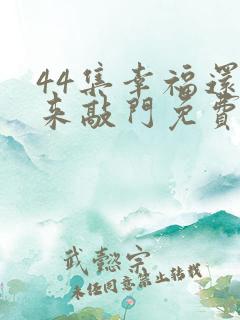 44集幸福還
來敲門免費
武懿宗
未经同意禁止转载